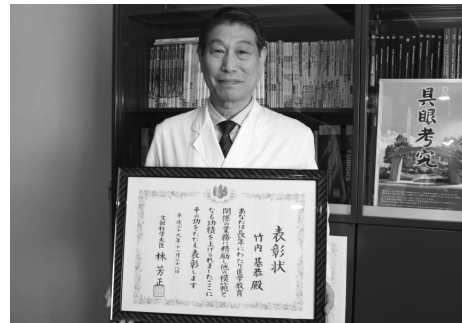 表彰状
竹内 基恭 殿
あなたは長年にわたり医学教育
関係の業務に精励し他の模範と
なる功績を上げられました ここに
その功をたたえ表彰します
平成二十九年十一月二十一日
文部科学大臣 林 芳正
具眼考究